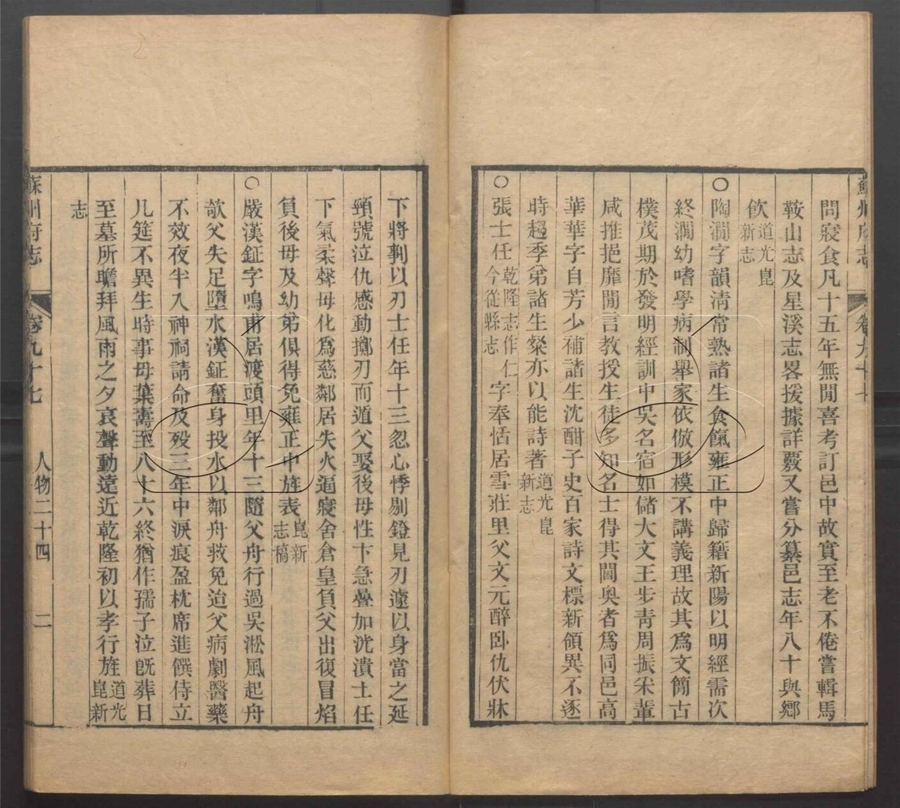 問寢食凡十五年無閒喜考訂邑中故實至老不倦嘗輯馬
鞍山志及星溪志畧援據詳覈又嘗分纂邑志年八十與鄉
飮道光崑新志
○陶澗字韻淸常熟諸生食餼雍正中歸籍新陽以明經需次
終澗幼嗜學病制舉家依倣形模不講義理故其爲文簡古
樸茂期於發明經訓中吳名宿如儲大文王步靑周振采輩
咸推挹靡閒言教授生徒多知名士得其閫奥者爲同邑高
華華字自芳少補諸生沈酣子史百家詩文標新領異不逐
時趨季弟諸生燊亦以能詩著道光崑新志
○張士任乾隆志作仁今從縣志字奉恬居雪莊里父文元醉卧仇伏牀
下將剚以刃士任年十三忽心悸剔鐙見刃遽以身當之延
頸號泣仇感動擲刃而遁父娶後母性卞急疊加詵潰士任
下氣柔聲母化爲慈鄰居失火逼寢舍倉皇負父出復冒焰
負後母及幼弟俱得免雍正中旌表崑新志稿
○嚴漢鉦字鳴甫居渡頭里年十三隨父舟行過吳淞風起舟
欹父失足墮水漢鉦奮身投水以鄰舟救免迨父病劇醫藥
不效夜半入神祠請命及歿三年中淚痕盈枕席進饌侍立
几筵不異生時事母葉壽至八十六終猶作孺子泣旣葬日
至墓所瞻拜風雨之夕哀聲動遠近乾隆初以孝行旌道光崑新
志
蘇州府志 卷九十七 人物二十四 二